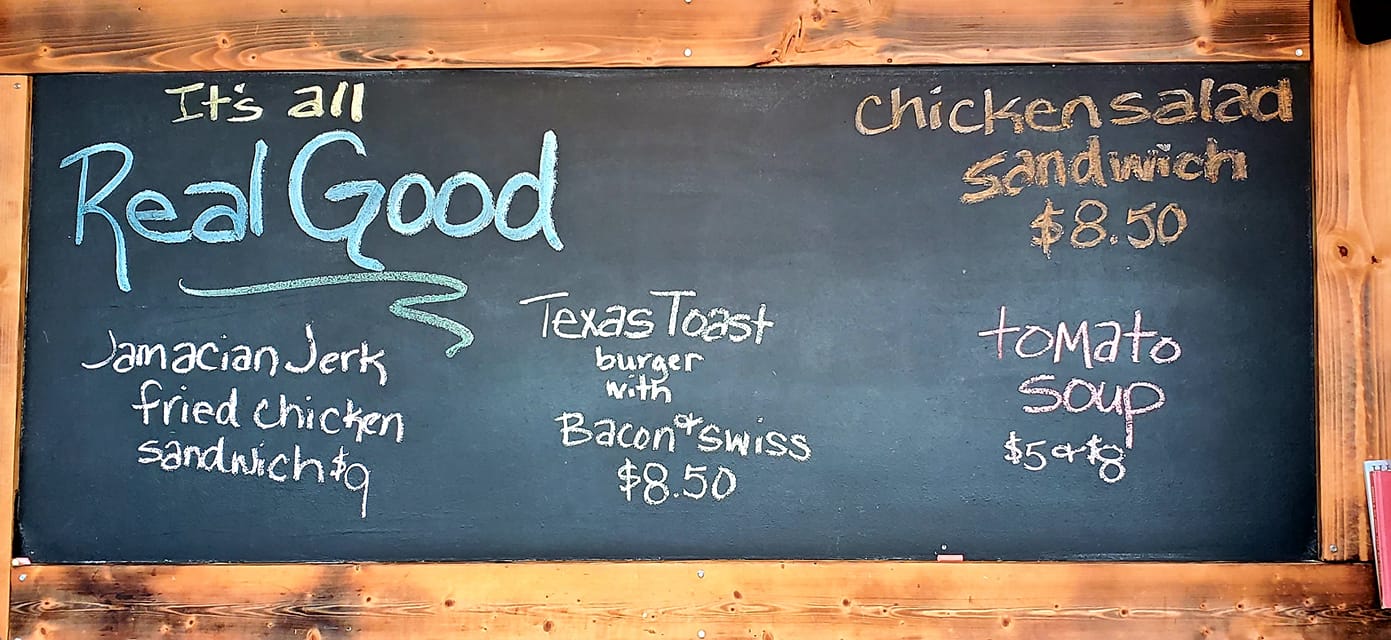 It's all
Real Good
Jamacian Jerk
fried chicken
sandwich $9
Texas Toast
burger
with
Bacon & swiss
$8.50
chicken salad
sandwich
$8.50
tomato
soup
$5 & $8